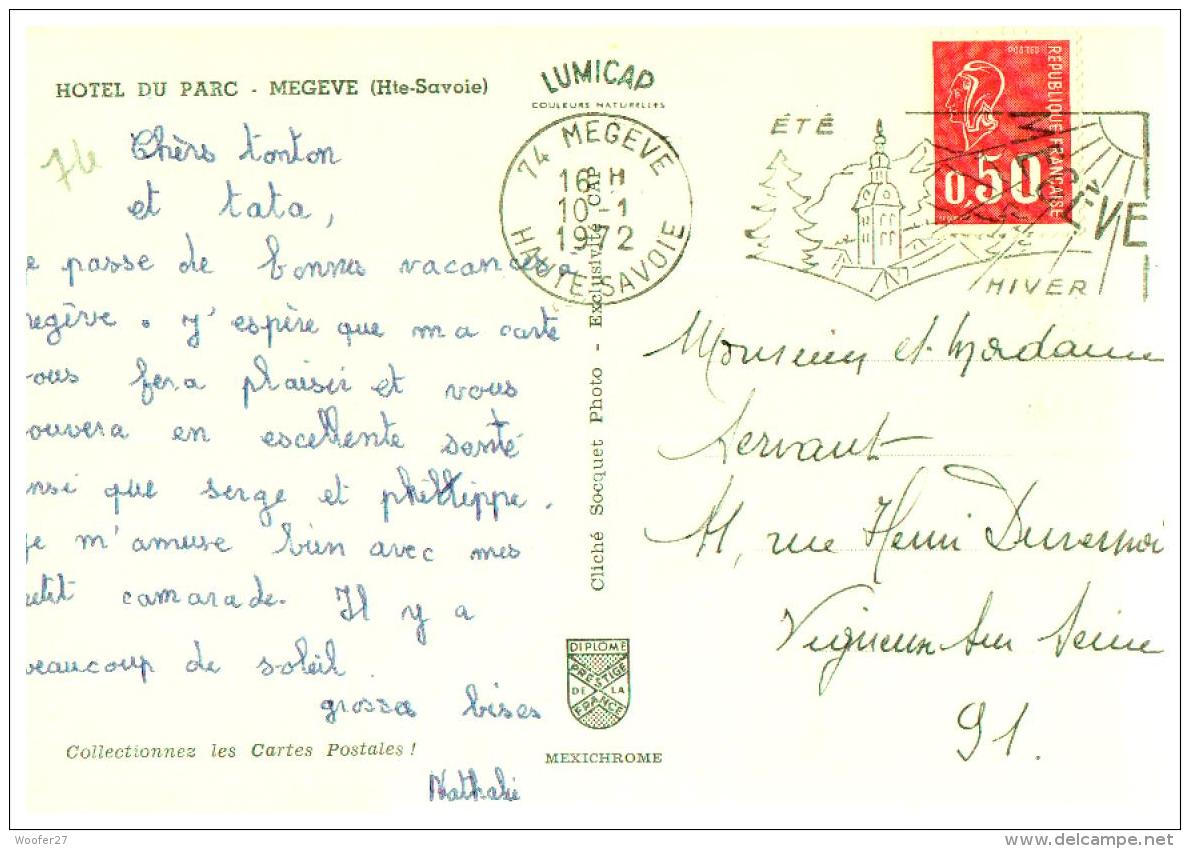 HOTEL DU PARC - MEGEVE (Hte-Savoie)
74
Chers tonton
et tata,
e passe de bonnes vacances a
megève. J'espère que ma carte
vous fera plaisir et vous
ouvera en escellente santé
insi que serge et philippe.
je m'amuse bien avec mes
petit camarade. Il y a
beaucoup de soleil.
grosses bises
Nathalie
Collectionnez les Cartes Postales !
LUMICAP
COULEURS NATURELLES
74 MEGEVE
16 H
10-1
1972
HAUTE-SAVOIE
Cliché Socquet Photo - Exclusivité CAP
DIPLOME
PRESTIGE
DE LA
FRANCE
MEXICHROME
ÉTÉ
MEGÈVE
HIVER
POSTES
REPUBLIQUE FRANÇAISE
0,50
Monsieur et Madame
Servant
11, rue Henri Duvernoi
Vigneux sur Seine
91.
Woofer27
delcampe.net